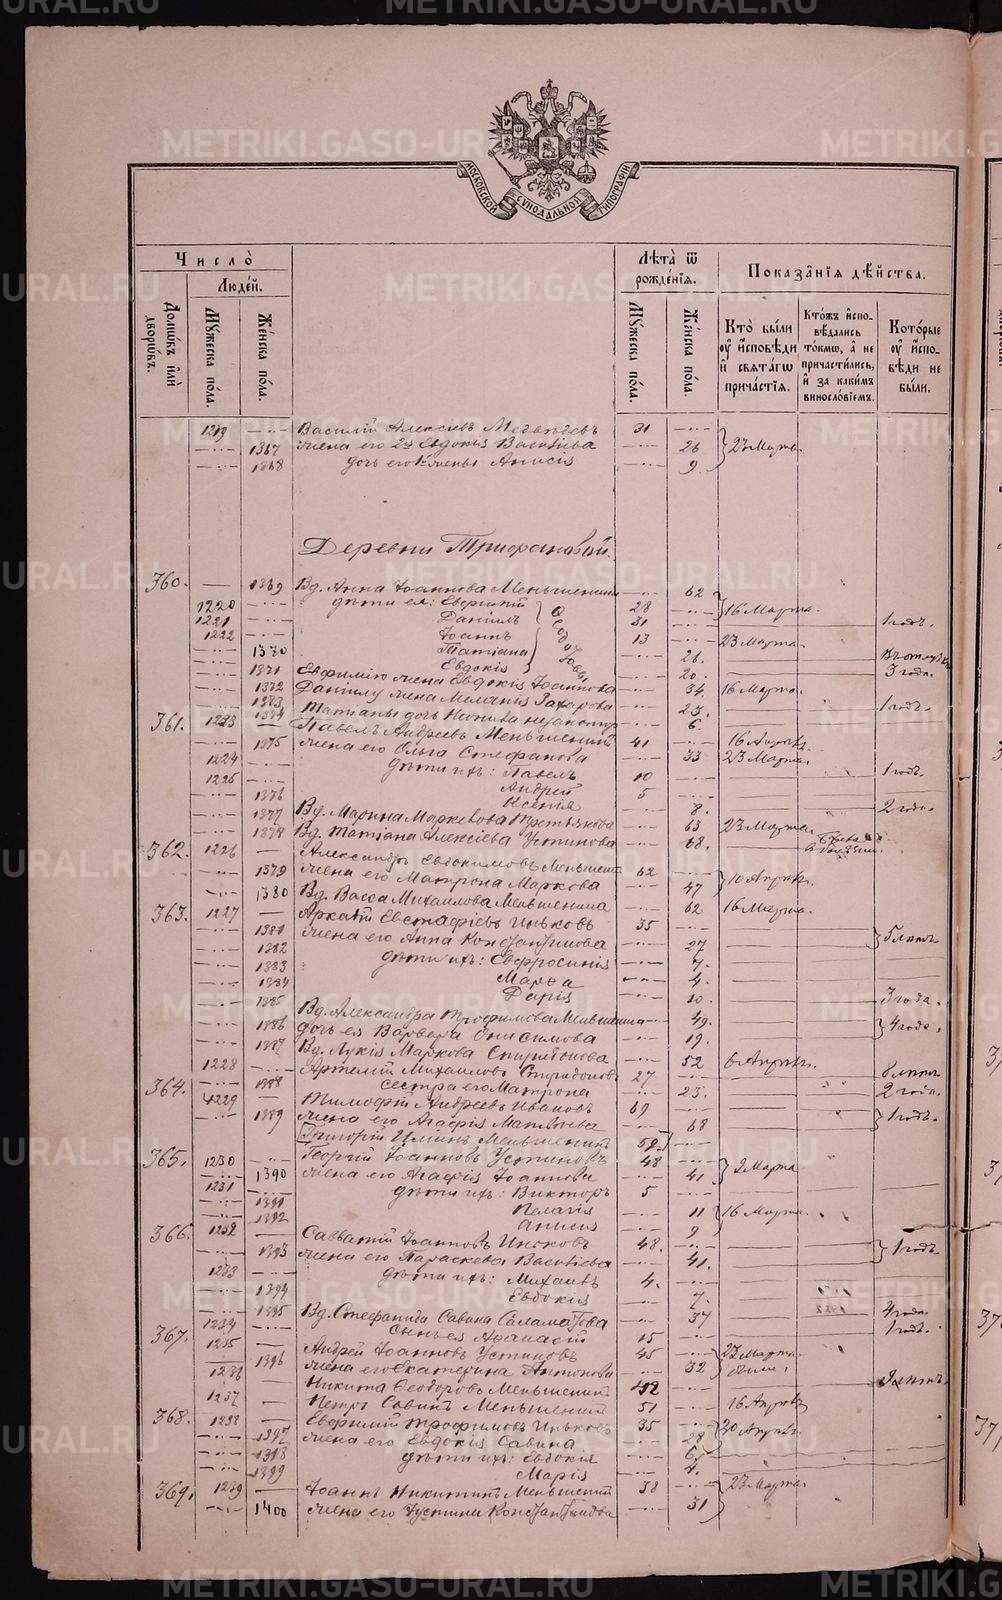 МОСКОВСКОЙ СѴНОДАЛЬНОЙ ТИПОГРАФІИ
Число̀
Людей.
Домѡвъ или дворѡвъ.
Мꙋжеска пола.
Женска пола.
Лѣта ѿ рожденїѧ.
Мꙋжеска пола.
Женска пола.
Показанїѧ дѣйства.
Кто были ᲂу исповѣди и свѧтагѡ причастїѧ.
Ктожъ исповѣдались токмѡ, а не причастились, и за какимъ винословїемъ.
Которые ᲂу исповѣди не были.
1219 Василій Алексѣевъ Медвѣдевъ 31
1367 жена его 2я Евдокія Васильева 26 23 Марта
1368 дочь его 1й жены Анисія 9
Деревни Трифановой
360. 1369 Вд. Анна Іоаннова Меньшенина 62
1220 дѣти ея: Евфимій 28 16 Марта
1221 Даніилъ 31 1 годъ.
1222 Іоаннъ 13 23 Марта
1370 Татіана 26.
1371 Евдокія 20. 3 года.
1372 Евфимію жена Евдокія Іоаннова 34. 16 Марта
1373 Даніилу жена Меланія Захарова 23. 1 годъ.
1374 Татіаны дочь 6.
361. 1223 Павелъ Андреевъ Меньшенинъ 41 16 Апрѣля
1375 жена его Ольга Стефанова 33 23 Марта.
1224 дѣти ихъ: Павелъ 10 1 годъ
1225 Андрей 5
1376 Ксенія 8. 2 года.
1377 Вд. Марина Маркелова Третьякова 63 23 Марта
1378 Вд. Татіана Алексіева Устинова 68.
362. 1226 Александръ Евдокимовъ Меньшенинъ 62
1379 жена его Матрона Маркова 47 10 Апрѣля
1380 Вд. Васса Михаилова Меньшенина 62 16 Марта.
363. 1227 Аркадій Евстафіевъ Иньковъ 35
1381 жена его Анна Константинова 27 5 лѣтъ
1382 дѣти ихъ: Евфросинія 7.
1383 Марѳа 4.
1384 Дарія 10. 3 года.
1385 Вд. Александра Трофимова Меньшенина 49.
1386 дочь ея Варвара Онисимова 19. 4 года.
1387 Вд. Лукія Маркова Спиридонова 52 6 Апрѣля
1228 Артемій Михаиловъ Спиридоновъ 27 8 лѣтъ
1388 сестра его Матрона 23. 2 года.
364. 1229 Тимофій Андреевъ Ивановъ 69
1389 жена его Агафія Матвѣева 68 1 годъ.
Григорій Меньшенинъ 52
365. 1230 Георгій Іоанновъ Устиновъ 48
1390 жена его Агафія Іоаннова 41 2 Марта
1231 дѣти ихъ: Викторъ 5
1391 Пелагія 11 16 Марта.
1392 Анисія 9
366. 1232 Савватій Іоанновъ Иньковъ 48.
1393 жена его Параскева Васильева 41. 1 годъ.
1233 дѣти ихъ: Михаилъ 4.
1394 Евдокія 7.
1395 Вд. Стефанида Савина Саламатова 37 4 года
1234 сынъ ея Афанасій 15 1 годъ.
367. 1235 Андрей Іоанновъ Устиновъ 45 23 Марта
1396 жена его Екатерина Антонова 32 были.
1236 Никита Ѳеодоровъ Меньшенинъ 2 лѣтъ
1237 Петръ Савинъ Меньшенинъ 51 16 Апрѣля
368. 1238 Евфимій Трофимовъ Иньковъ 35
1397 жена его Евдокія Савина 28 30 Апрѣля
1398 дѣти ихъ: Евдокія 6
1399 Марія 4.
369. 1239 Іоаннъ Никитинъ Меньшенинъ 38 23 Марта
1400 жена его Іустина Константинова 31
METRIKI.GASO-URAL.RU